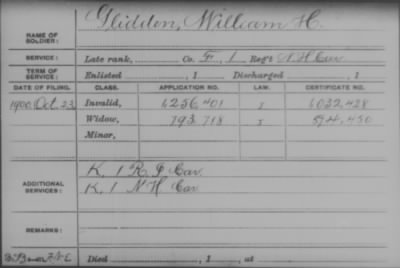 Glidden, William H.
NAME OF SOLDIER:
SERVICE: Late rank, Co. F, 1 Reg't N.H. Cav.
TERM OF SERVICE: Enlisted , 1 Discharged , 1
DATE OF FILING. CLASS. APPLICATION NO. LAW. CERTIFICATE NO.
1900, Oct. 23, Invalid, 1256,401 1032,428
Widow, 793,718 514,450
Minor,
ADDITIONAL SERVICES: K. 1 R I Cav.
K. 1 N H Cav
REMARKS:
Died , 1 , at